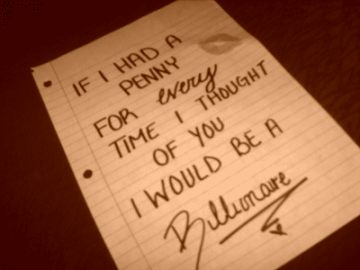 IF I HAD A
PENNY
FOR every
TIME I THOUGHT
OF YOU
I WOULD BE A
Billionaire